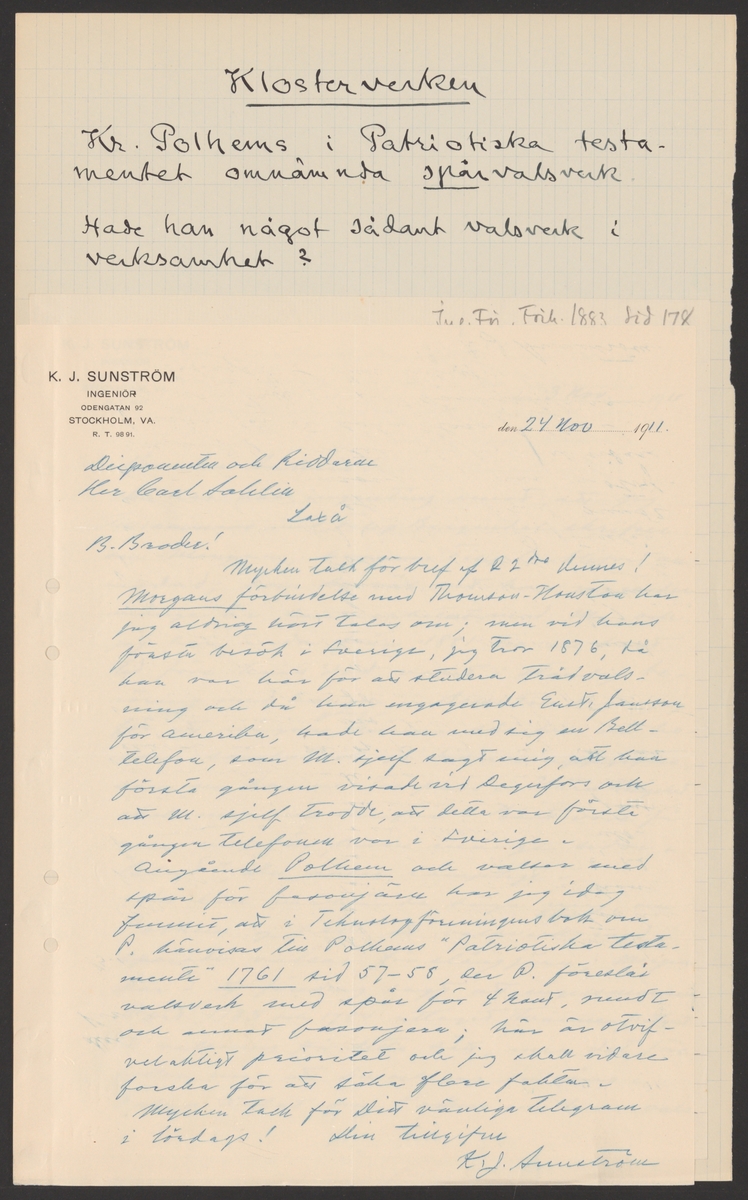 Klosterverken
Kr. Polhems i Patriotiska testa-
mentet omnämnda spårvalsverk.
Hade han något sådant valsverk i
verksamhet?
Ing. För. Förh. 1883 sid 178
K. J. SUNSTRÖM
INGENIÖR
ODENGATAN 92
STOCKHOLM, VA.
R. T. 98 91.
den 24 Nov 1911.
Disponenten och Riddaren
Herr Carl Sahlin
Laxå
B. Broder!
Mycken tack för bref af 22dre dennes!
Morgans förbindelse med Thomson-Houston har
jag aldrig hört talas om; men vid hans
första besök i Sverige, jag tror 1876, då
han var här för att studera trådvals-
ning och då han engagerade Gust. Jansson
för Amerika, hade han med sig en Bell-
telefon, som M. sjelf sagt mig, att han
första gången visade vid Degerfors och
att M. sjelf trodde, att detta var första
gången telefonen var i Sverige.
Angående Polhem och valsar med
spår för fasonjärn har jag idag
funnit, att i Teknologföreningens bok om
P. hänvisas till Polhems "Patriotiska testa-
mente" 1761 sid 57–58, der P. föreslår
valsverk med spår för 4kant, rundt
och annat fasonjern; här är otvif-
velaktigt prioritet och jag skall vidare
forska för att söka flere fakta.
Mycken tack för Ditt vänliga telegram
i lördags! Din tillgifne
K. J. Sunström